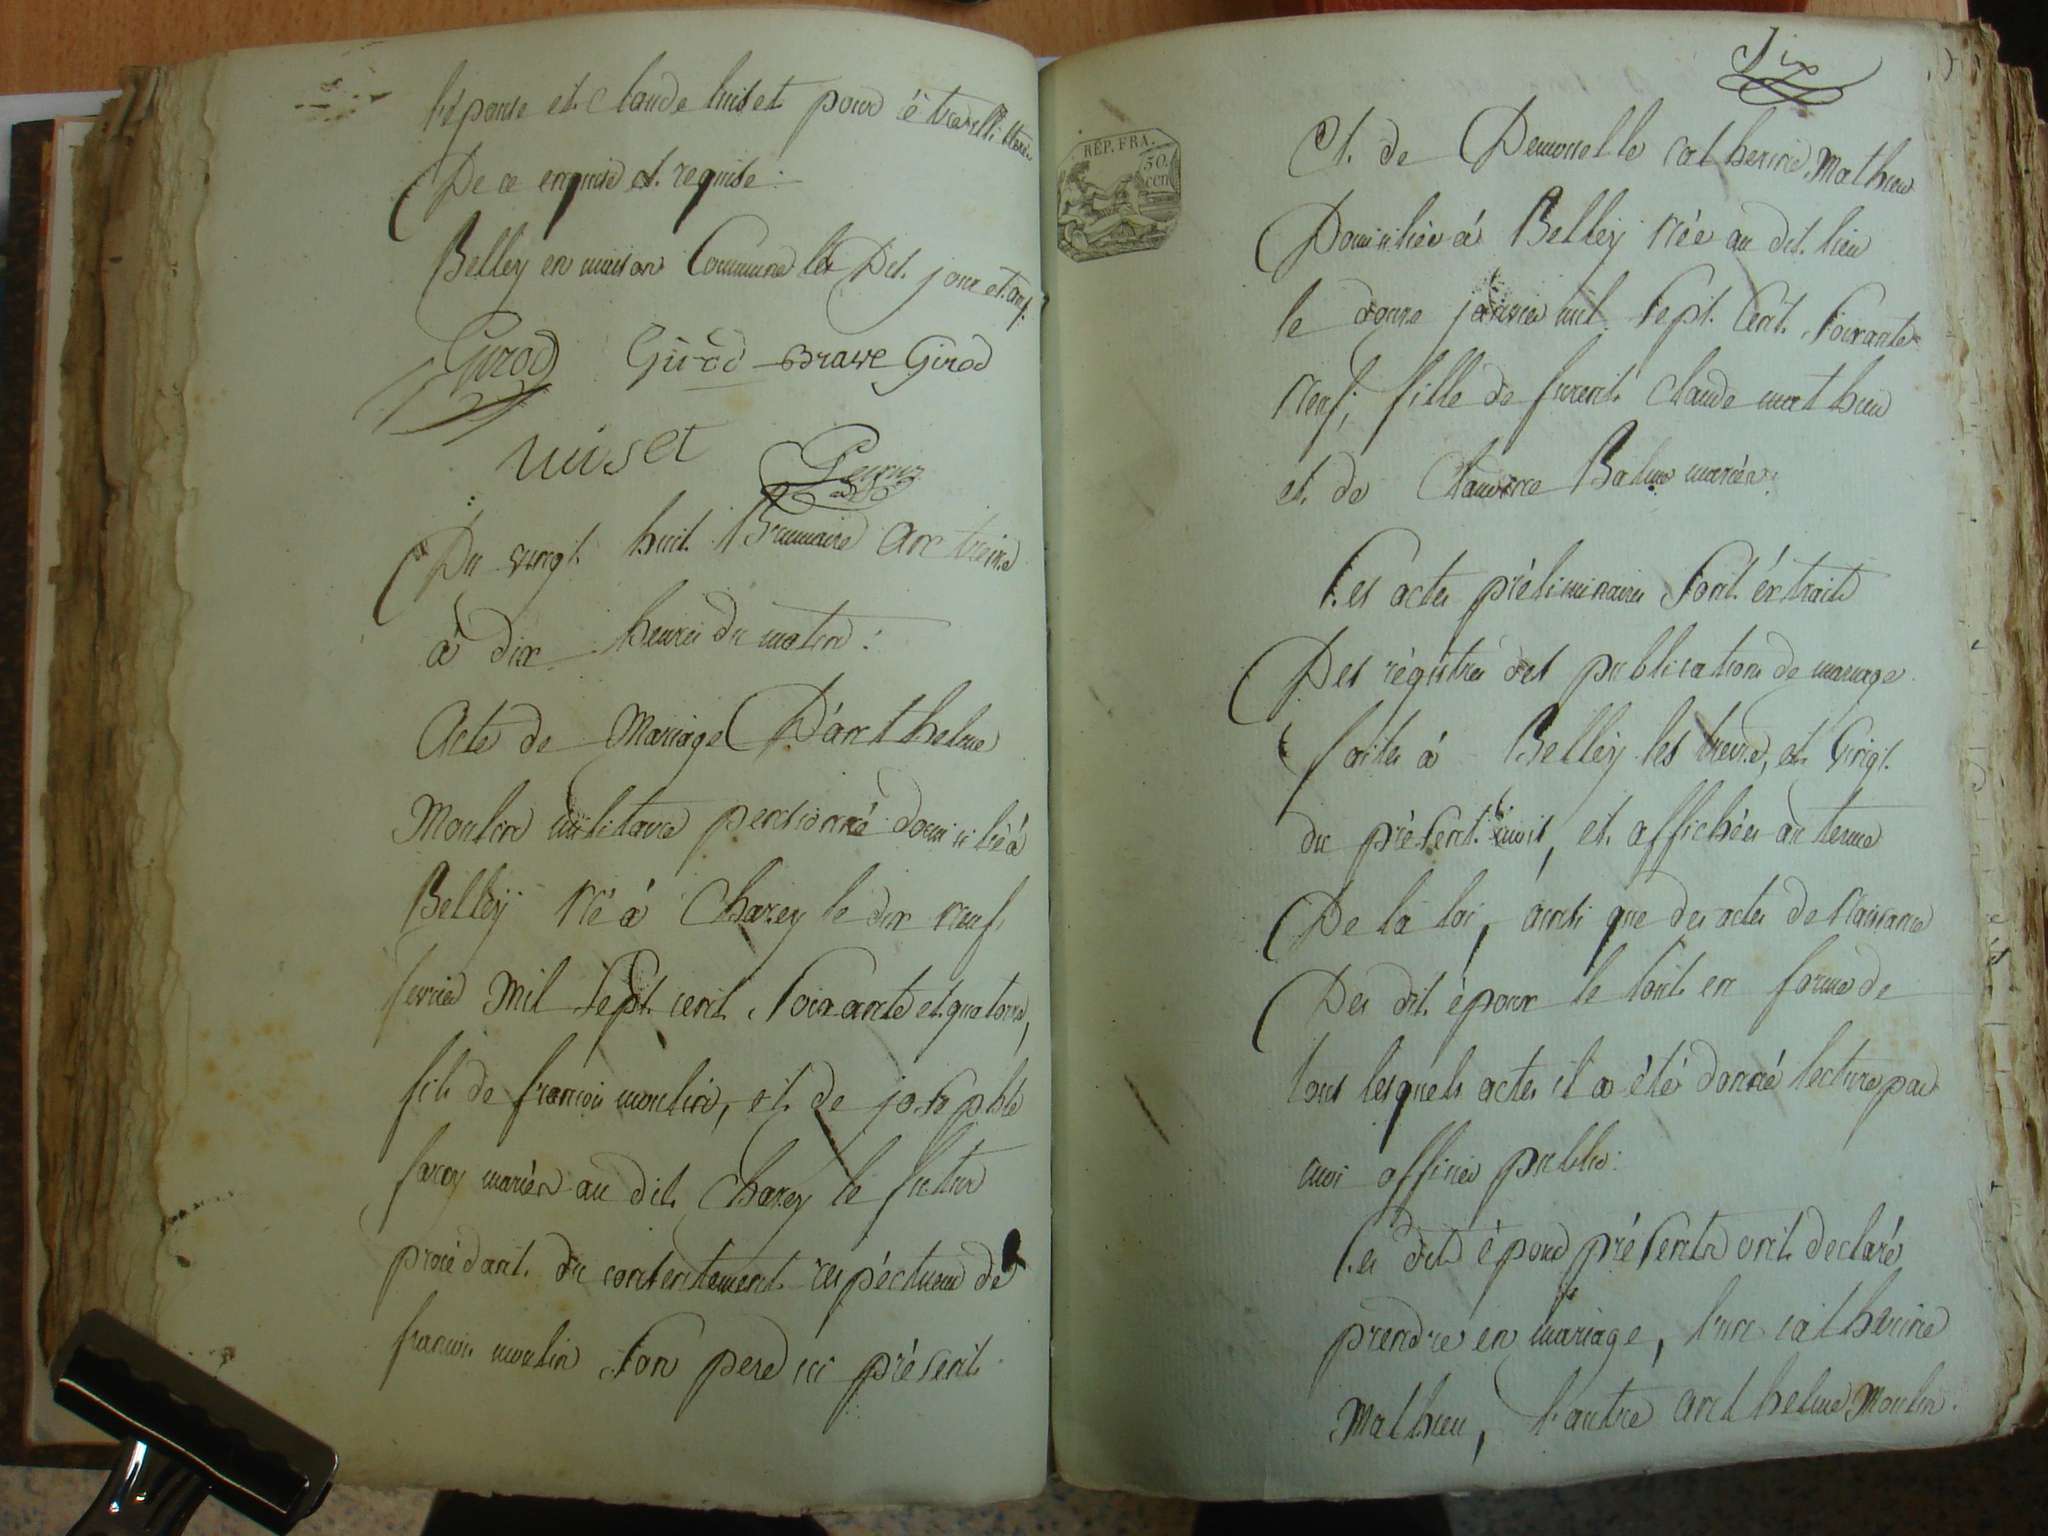 l'épouse et Claude luiset pour être illiterée
De ce enquise et requise :
Belley en maison Commune les Dit jour et an.
Girod Girod Brave Girod
Luiset
Du vingt huit Brumaire an treize
à dix heures du matin :
Acte de Mariage D'anthelme
Moulin militaire pensionné domicilié à
Belley né à Chazey le dix neuf
fevrier mil Sept cent Soixante et quatorze,
fils de francois moulin, et de josephte
faroy mariés au dit Chazey le futur
procédant du consentement respéctueux de
francois moulin Son pere ici présent
Dix
Et de Demoiselle catherine Mathieu
Domiciliée à Belley née au dit lieu
le douze janvier mil Sept Cent Soixante
neuf, fille de furent Claude mathieu
et de Claudine Balme mariés :
Les actes préliminaires Sont éxtraits
Des régistres des publications de mariage
faites à Belley les treize, et vingt
du présent mois, et affichées au terme
De la loi, ainsi que des actes de Naissance
Des dit époux le tout en forme de
tous lesquels actes il a été donné lecture par
moi officier public :
Les dits époux présents ont declaré
prendre en mariage, l'un catherine
Mathieu, l'autre anthelme Moulin.
REP. FRA.
50.
cen